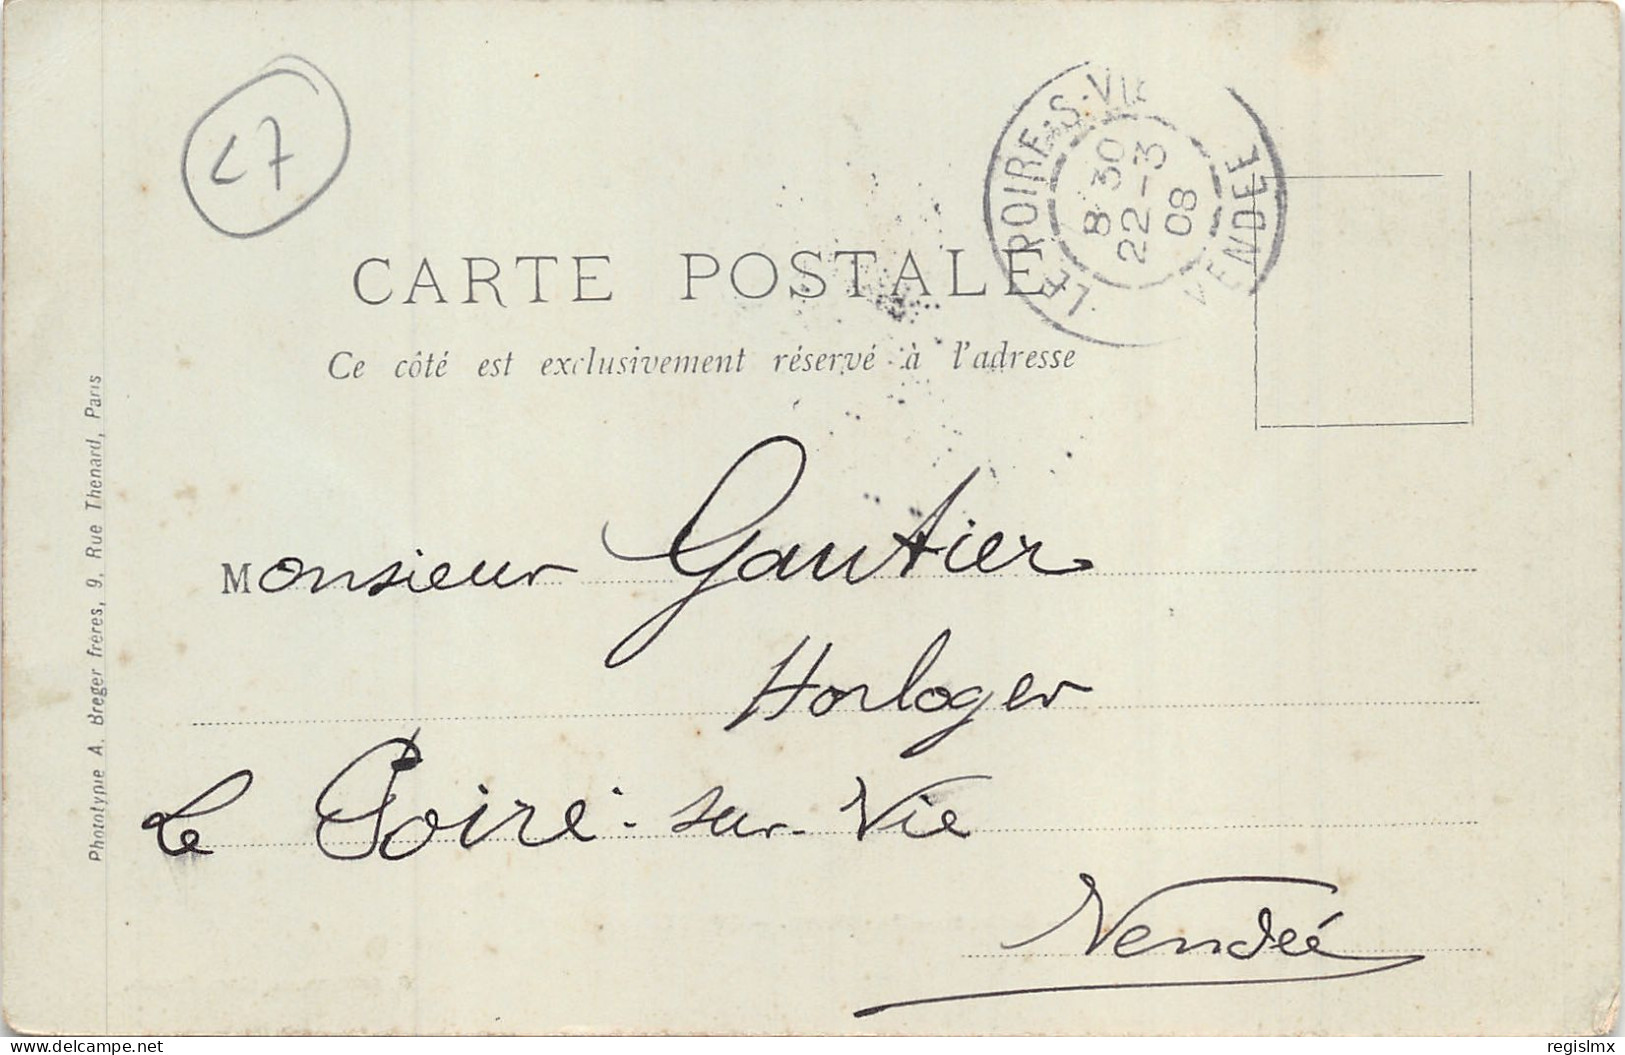 27
LE POIRE-S-VIE
8 30
22-3
08
VENDEE
CARTE POSTALE
Ce côté est exclusivement réservé à l'adresse
Monsieur Gautier
Horloger
Le Poiré-sur-Vie
Vendée
Phototypie A. Breger frères, 9, Rue Thenard, Paris
delcampe.net
regislmx